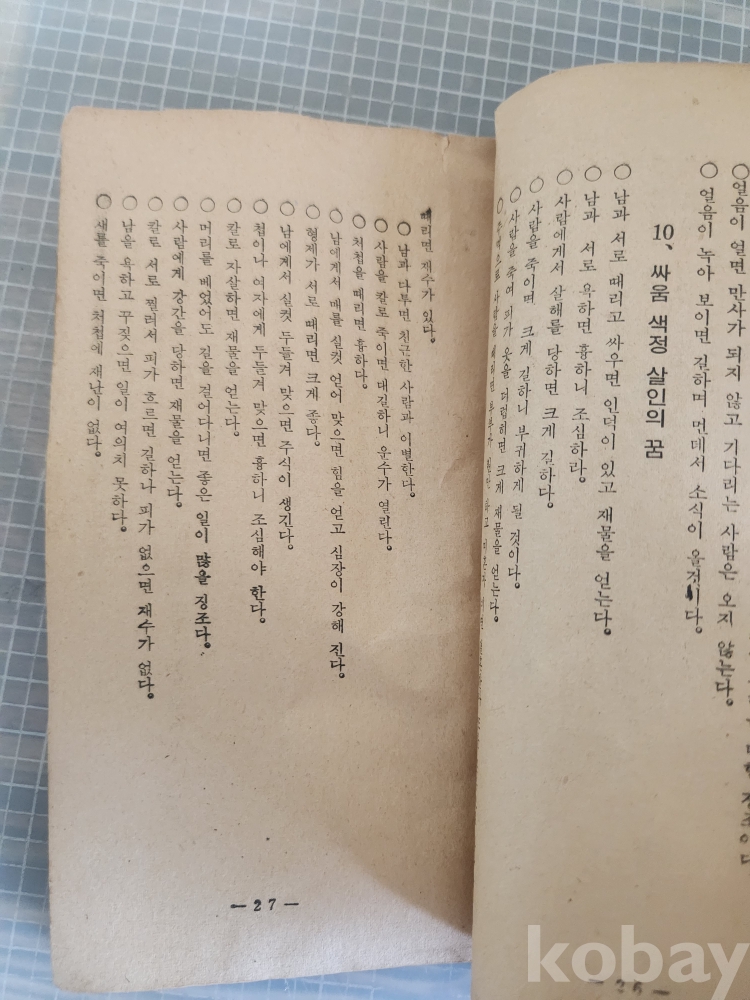 얼음이 얼면 만사가 되지 않고 기다리는 사람은 오지 않는다。
○ 얼음이 녹아 보이면 길하며 먼데서 소식이 올것이다。
10、싸움 색정 살인의 꿈
○ 남과 서로 때리고 싸우면 인덕이 있고 재물을 얻는다。
○ 남과 서로 욕하면 흉하니 조심하라。
○ 사람에게서 살해를 당하면 크게 길하다。
○ 사람을 죽이면 크게 길하니 부귀하게 될 것이다。
○ 사람을 죽여 피가 옷을 더럽히면 크게 재물을 얻는다。
○ 사람을
— 26 —
때리면 재수가 있다。
○ 남과 다투면 친근한 사람과 이별한다。
○ 사람을 칼로 죽이면 대길하니 운수가 열린다。
○ 처첩을 때리면 흉하다。
○ 남에게서 매를 실컷 얻어 맞으면 힘을 얻고 심장이 강해 진다。
○ 형제가 서로 때리면 크게 좋다。
○ 남에게서 실컷 두들겨 맞으면 주식이 생긴다。
○ 첩이나 여자에게 두들겨 맞으면 흉하니 조심해야 한다。
○ 칼로 자살하면 재물을 얻는다。
○ 머리를 베었어도 길을 걸어다니면 좋은 일이 많을 징조다。
○ 사람에게 강간을 당하면 재물을 얻는다。
○ 칼로 서로 찔러서 피가 흐르면 길하나 피가 없으면 재수가 없다。
○ 남을 욕하고 꾸짖으면 일이 여의치 못하다。
○ 새를 죽이면 처첩에 재난이 없다。
— 27 —
kobay